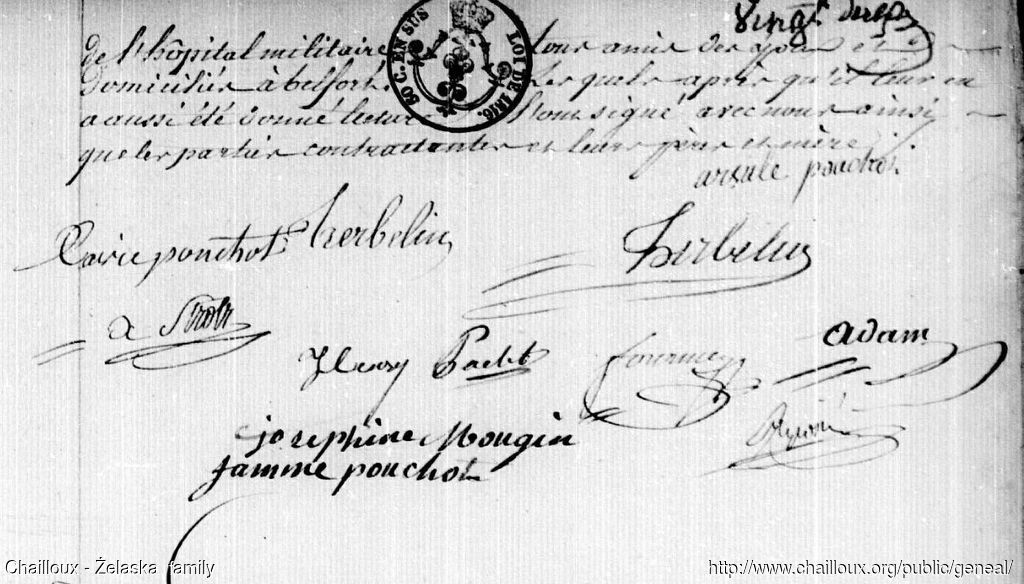 Vingt
de l'hôpital militaire tous amis des époux et
domiciliés à belfort. Lesquels après qu'il leur en
a aussi été donné lecture l'ont signé avec nous ainsi
que les parties contractantes et leurs père et mère.
50 C. EN SUS LOI DE 1816.
arsule ponchot
ponchot herbelin
herbelin
Adam
henry
fournier
josephine Mougin
famme ponchot
Chailloux - Żelaska family
http://www.chailloux.org/public/geneal/